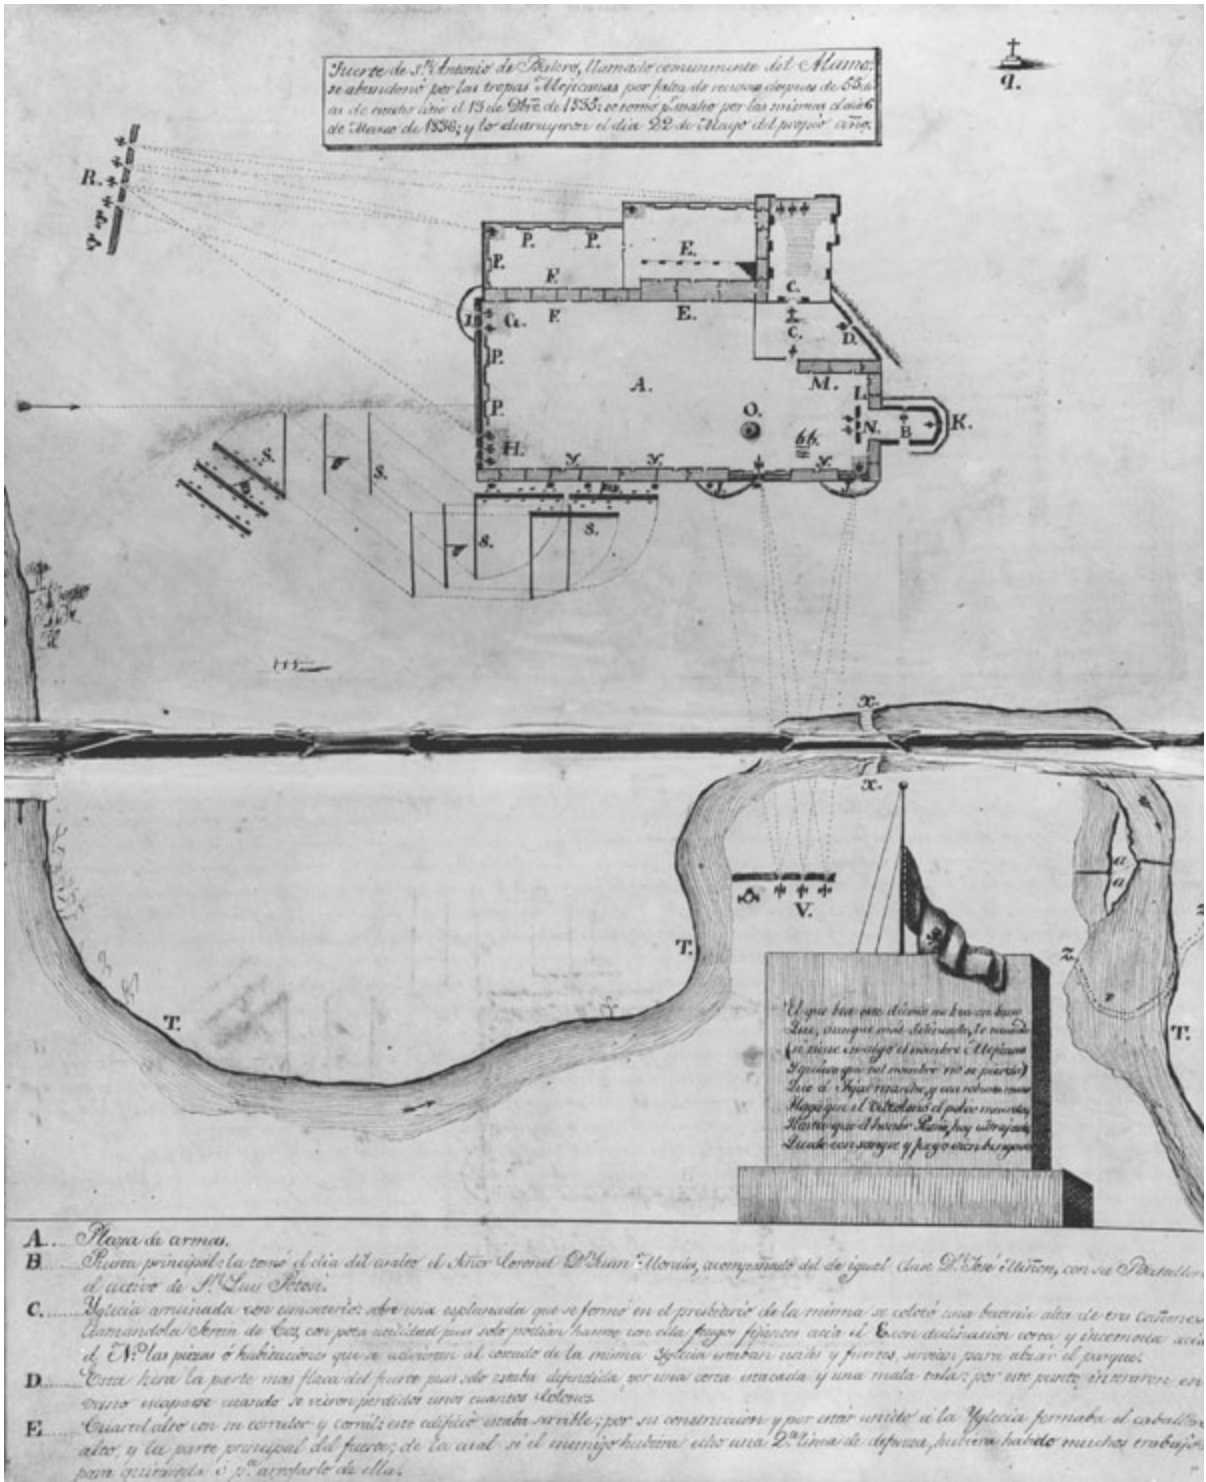 Fuerte de S.n Antonio de Valero, llamado comunmente del Alamo:
se abandonó por las tropas Mejicanas por falta de recursos despues de 55 di-
as de cituado el 13 de Dbre de 1835; se tomó p.r asalto por las mismas el dia 6
de Marzo de 1836; y lo destruyeron el dia 22 de Mayo del propio año.
q.
R.
P. P.
P.
E.
F.
F. E.
G.
C.
C.
D.
P.
A.
M.
L.
P.
O.
N. B K.
H.
bb.
S.
S.
S. S.
x.
x.
a
a
V.
T.
Z.
T.
T.
El que vea este diseño
Que, aunque mal delineado, lo
(si tiene en algo el nombre Mejicano
Y quiera que tal nombre no se pierda)
Que á Tejas marche, y con robusta mano
Haga que el el polvo muerda,
Hasta que el honor Patrio, hoy ultrajado,
Quede con sangre y fuego bien bengado
A.... Plaza de armas.
B.... Puerta principal: la tomó el dia del asalto el Señor Coronel D.n Juan Morales, acompañado del de igual clase D.n José Miñon, con su Batallon
el activo de S.n Luis Potosi.
C.... Yglecia arruinada con cementerio: sobre una esplanada que se formó en el presbiterio de la misma se colocó una bateria alta de tres cañones
llamandola Fortin de Coz, con poca utilidad pues solo podian hacerse con ella fuegos fijantes acia el E. con declinacion corta y incomoda acia
el N.e las piezas ó habitaciones que se advierten al costado de la misma Yglecia estaban utiles y fuertes, servian para alzar el parque.
D.... Esta hera la parte mas flaca del fuerte pues solo estaba defendida por una corta estacada y una mala tala: por este punto, en
vano escaparse cuando se vieron perdidos unos cuantos colonos.
E.... Cuartel alto con su corredor y corral: este edificio estaba servible; por su construccion y por estar unido á la Yglecia formaba el caballero
alto, y la parte principal del fuerte; de la cual si el enemigo hubiera echo una 2.a linea de defenza, hubiera habido muchos trabajos
para quitarsela ó p.a arrojarlo de ella.